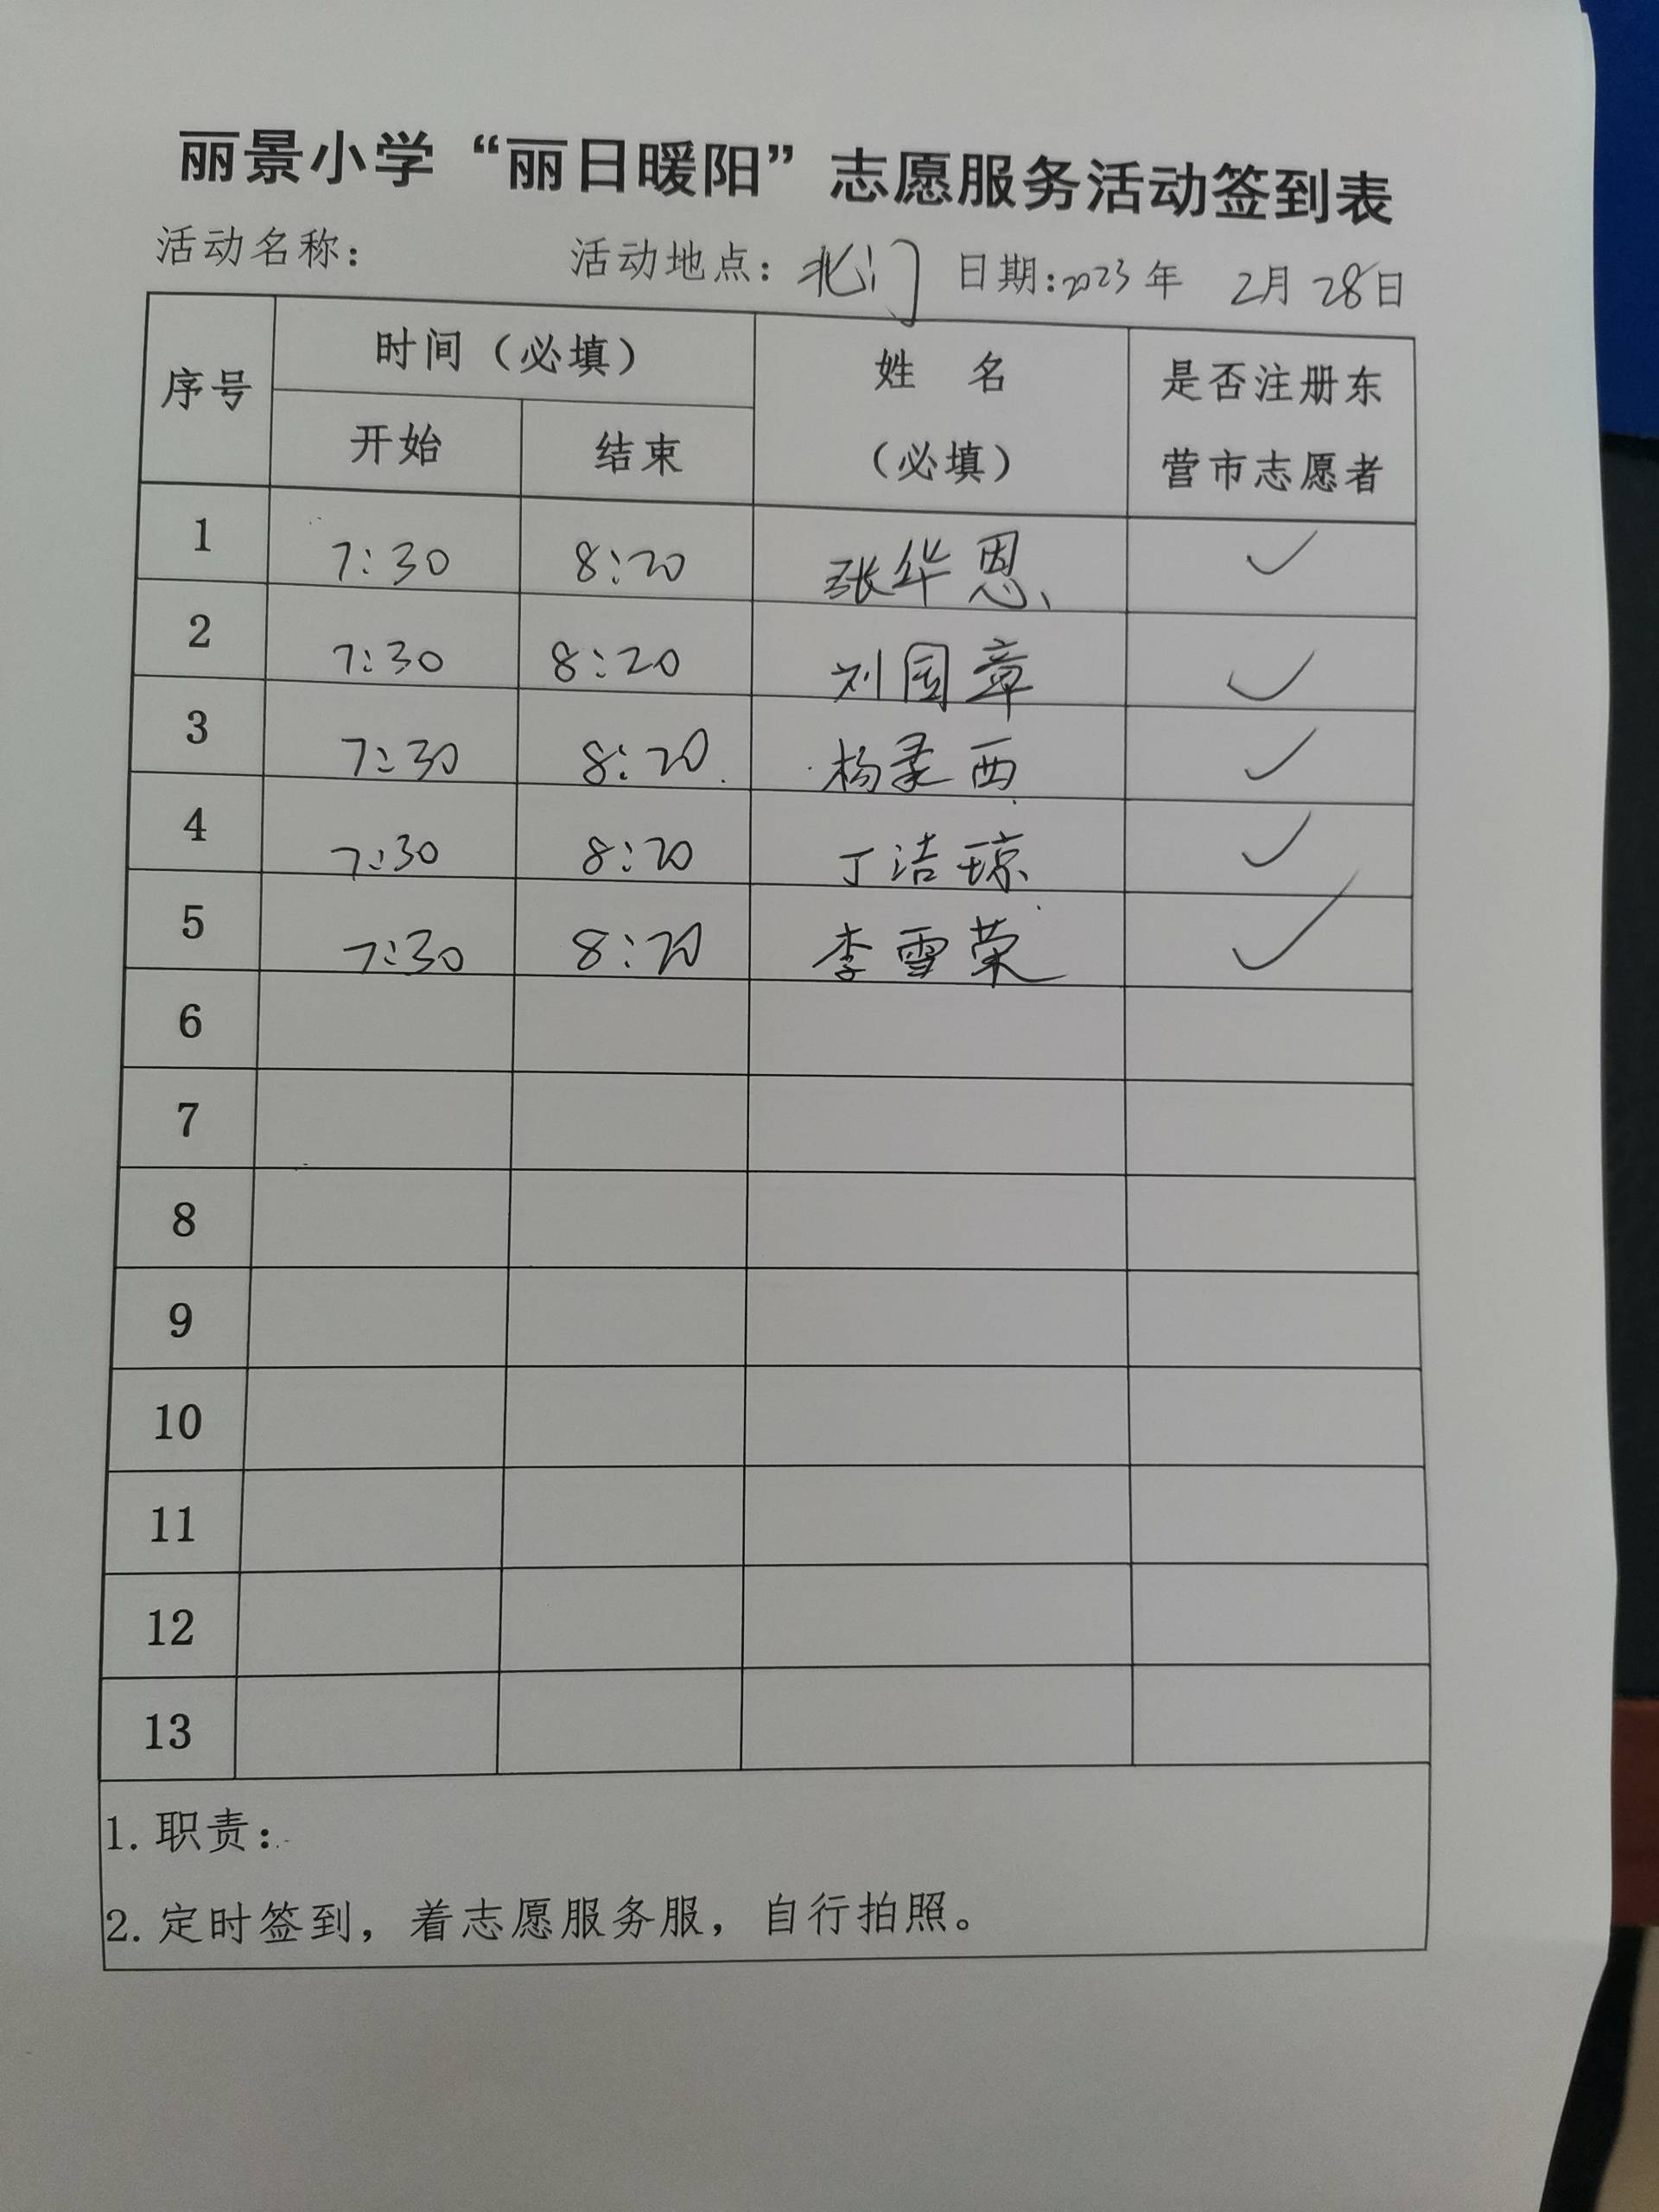 丽景小学“丽日暖阳”志愿服务活动签到表
活动名称： 活动地点：北门 日期:2023年 2月28日
序号 时间（必填） 姓 名（必填） 是否注册东营市志愿者
开始 结束
1 7:30 8:20 张华恩 ✓
2 7:30 8:20 刘国章 ✓
3 7:30 8:20 杨柔西 ✓
4 7:30 8:20 丁洁琼 ✓
5 7:30 8:20 李雪荣 ✓
6
7
8
9
10
11
12
13
1. 职责：
2. 定时签到，着志愿服务服，自行拍照。